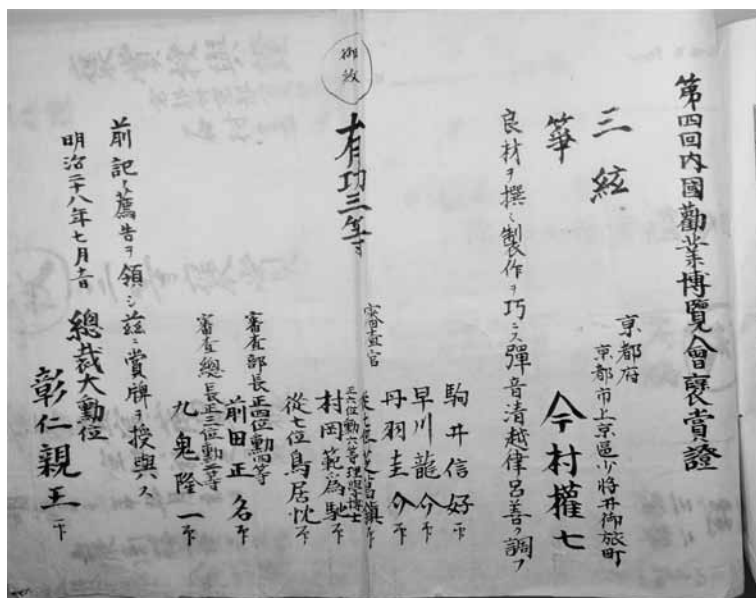 第四回内國勸業博覽會褒賞證
三絃
箏
京都府
京都市上京區少將井御旅町
今村權七
良材ヲ撰ミ製作ヲ巧ニス彈音清越律呂善ク調フ
御紋
有功三等
審査官
駒井信好
早川龍介
丹羽圭介
正六位勳六等理學博士
村岡範為馳
從七位鳥居忱
審査部長正四位勳等
前田正名
審査總長正三位勳二等
九鬼隆一
前記ノ薦告ヲ領シ茲ニ賞牌ヲ授與ス
明治二十八年七月
總裁大勳位
彰仁親王